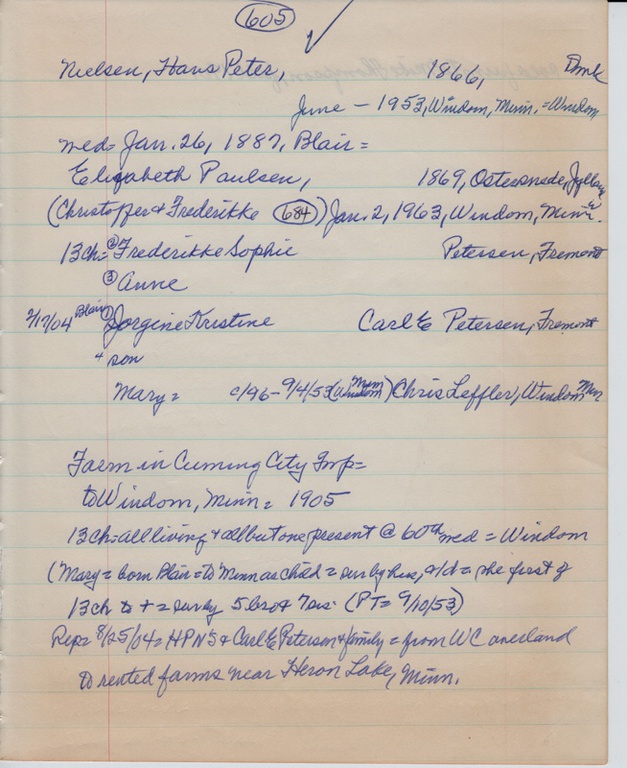 605 ✓
Nielsen, Hans Peter, 1866, Dmk
June - 1953, Windom, Minn. = Windom
med = Jan. 26, 1887, Blair =
Elizabeth Paulsen, 1869, Ostersnede, Jylland
(Christoffer & Frederikke (684)) Jan. 2, 1963, Windom, Minn. W
13ch = ② Frederikke Sophie Petersen, Fremont
③ Anne
2/17/04 Blair ① Jorgine Kristine Carl E Petersen, Fremont
4 son
Mary = c/96 - 9/4/53 (Windom Minn) Chris Leffler, Windom Minn
Farm in Cuming City Twp =
to Windom, Minn = 1905
13ch = all living & all but one present @ 60th med = Windom
(Mary = born Blair = to Minn as child = sur by hus, 4/d = she first of
13ch to + = sur by 5 bro & 7 sis. (PT = 9/10/53)
Rep = 8/25/04 = HPN's & Carl E Petersen & family = from WC overland
to rented farms near Heron Lake, Minn.